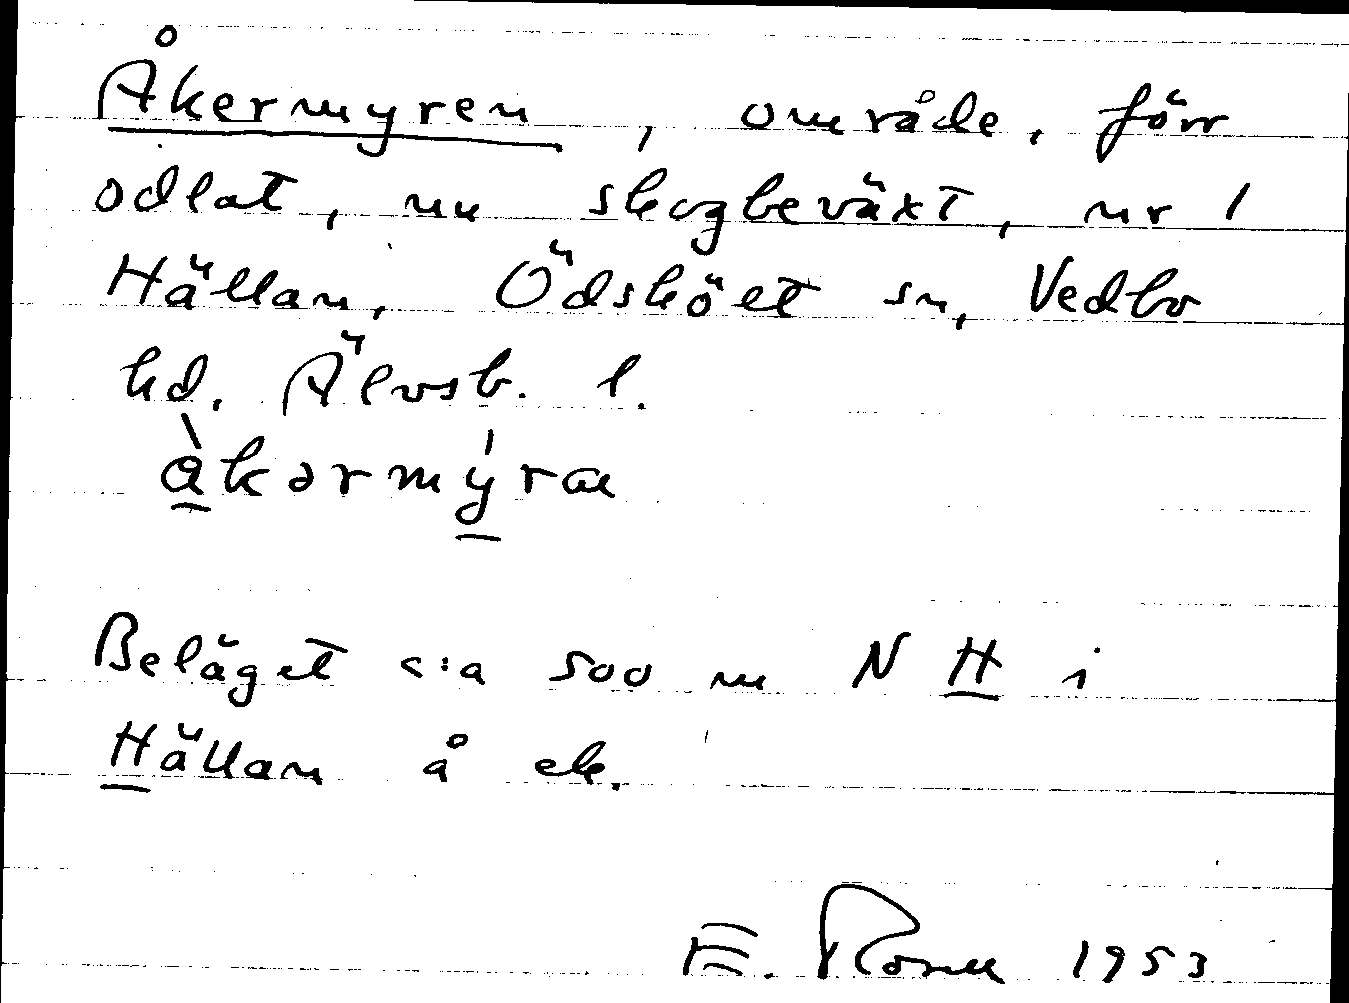 Åkermyren, område, förr
odlat, nu skogbeväxt, nr 1
Hällan, Ödsköèt sn, Vedbo
hd. Älvsb. l.
àkərmýræ
Beläget c:a 500 m N H i
Hällan å ek.
E. 1953